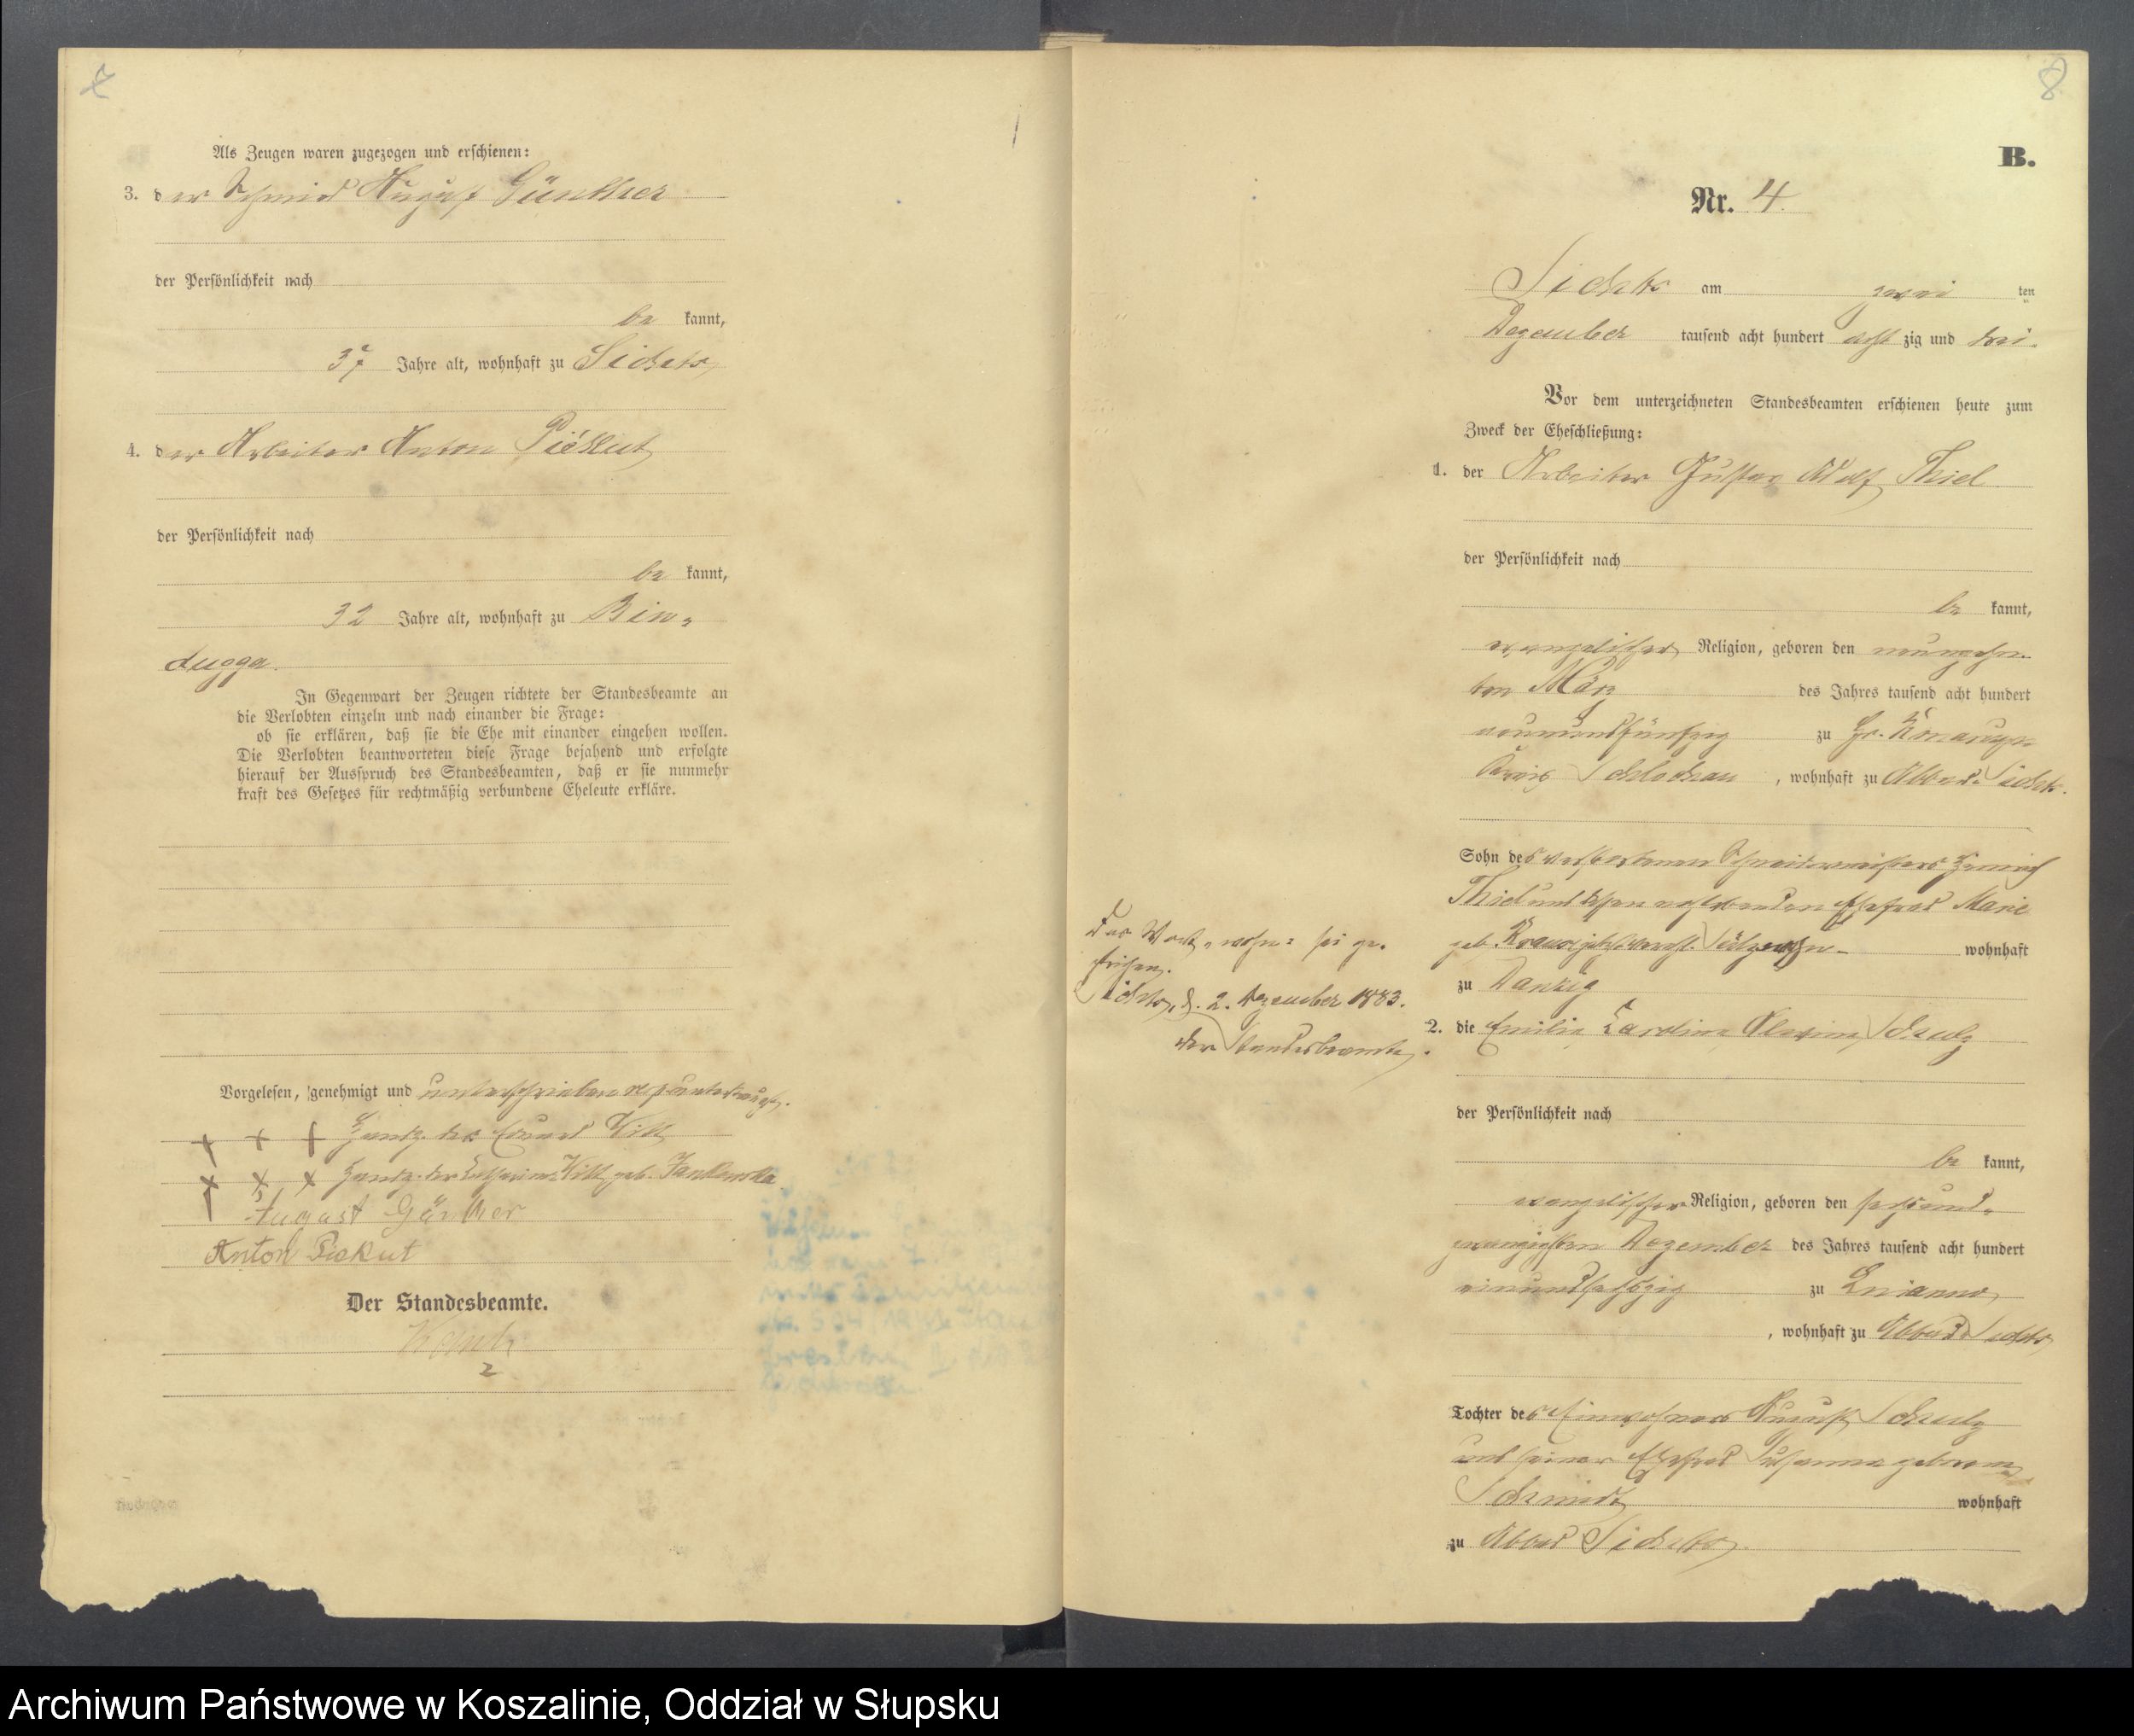 7
Als Zeugen waren zugezogen und erschienen:
3. der Schmied August Günther
der Persönlichkeit nach
be kannt,
37 Jahre alt, wohnhaft zu Sichts,
4. der Arbeiter Anton Piékut
der Persönlichkeit nach
be kannt,
32 Jahre alt, wohnhaft zu Bin-
dugga.
In Gegenwart der Zeugen richtete der Standesbeamte an
die Verlobten einzeln und nach einander die Frage:
ob sie erklären, daß sie die Ehe mit einander eingehen wollen.
Die Verlobten beantworteten diese Frage bejahend und erfolgte
hierauf der Ausspruch des Standesbeamten, daß er sie nunmehr
kraft des Gesetzes für rechtmäßig verbundene Eheleute erkläre.
Vorgelesen, genehmigt und unterschrieben resp. unterkreuzt.
+ + + Handz. des Eduard Witt
+ x x Handz. der Witt geb. Jankowska
August Günther
Anton Piekut
Der Standesbeamte.
8
B.
Nr. 4.
Sichts am zwei ten
Dezember tausend acht hundert acht zig und drei.
Vor dem unterzeichneten Standesbeamten erschienen heute zum
Zweck der Eheschließung:
1. der Arbeiter Gustav Adolf Thiel
der Persönlichkeit nach
be kannt,
evangelischer Religion, geboren den neunzehn-
ten März des Jahres tausend acht hundert
neunundfünfzig zu Gr.
Kreis Schlochau, wohnhaft zu Abbau-Sichts.
Sohn des verstorbenen Schneidermeisters Heinrich
Thiel und dessen nachlebenden Ehefrau Marie
geb. Kraus jetzt wohnhaft
zu Danzig
Das Wort „wohn“ sei ge-
strichen.
Sichts, d. 2. Dezember 1883.
Der Standesbeamte.
2. die Emilie Caroline Schulz
der Persönlichkeit nach
be kannt,
evangelischer Religion, geboren den sechsund-
zwanzigsten Dezember des Jahres tausend acht hundert
einundsechszig zu Lnianno
, wohnhaft zu Abbau Sichts
Tochter des Einwohners August Schulz
und seiner Ehefrau Susanna geborene
Schmidt wohnhaft
zu Abbau Sichts.
Archiwum Państwowe w Koszalinie, Oddział w Słupsku